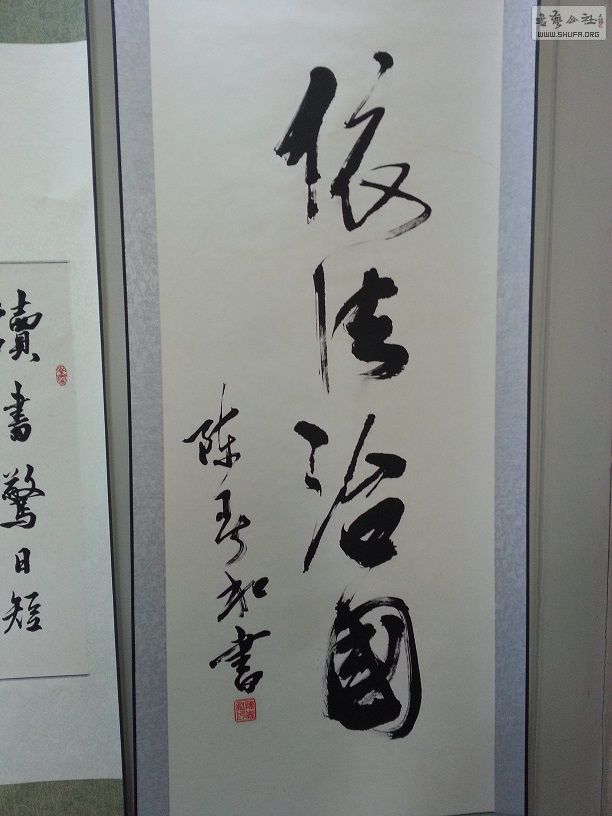 依法治國
陈春和書
讀書驚日短
書藝公社
WWW.SHUFA.ORG